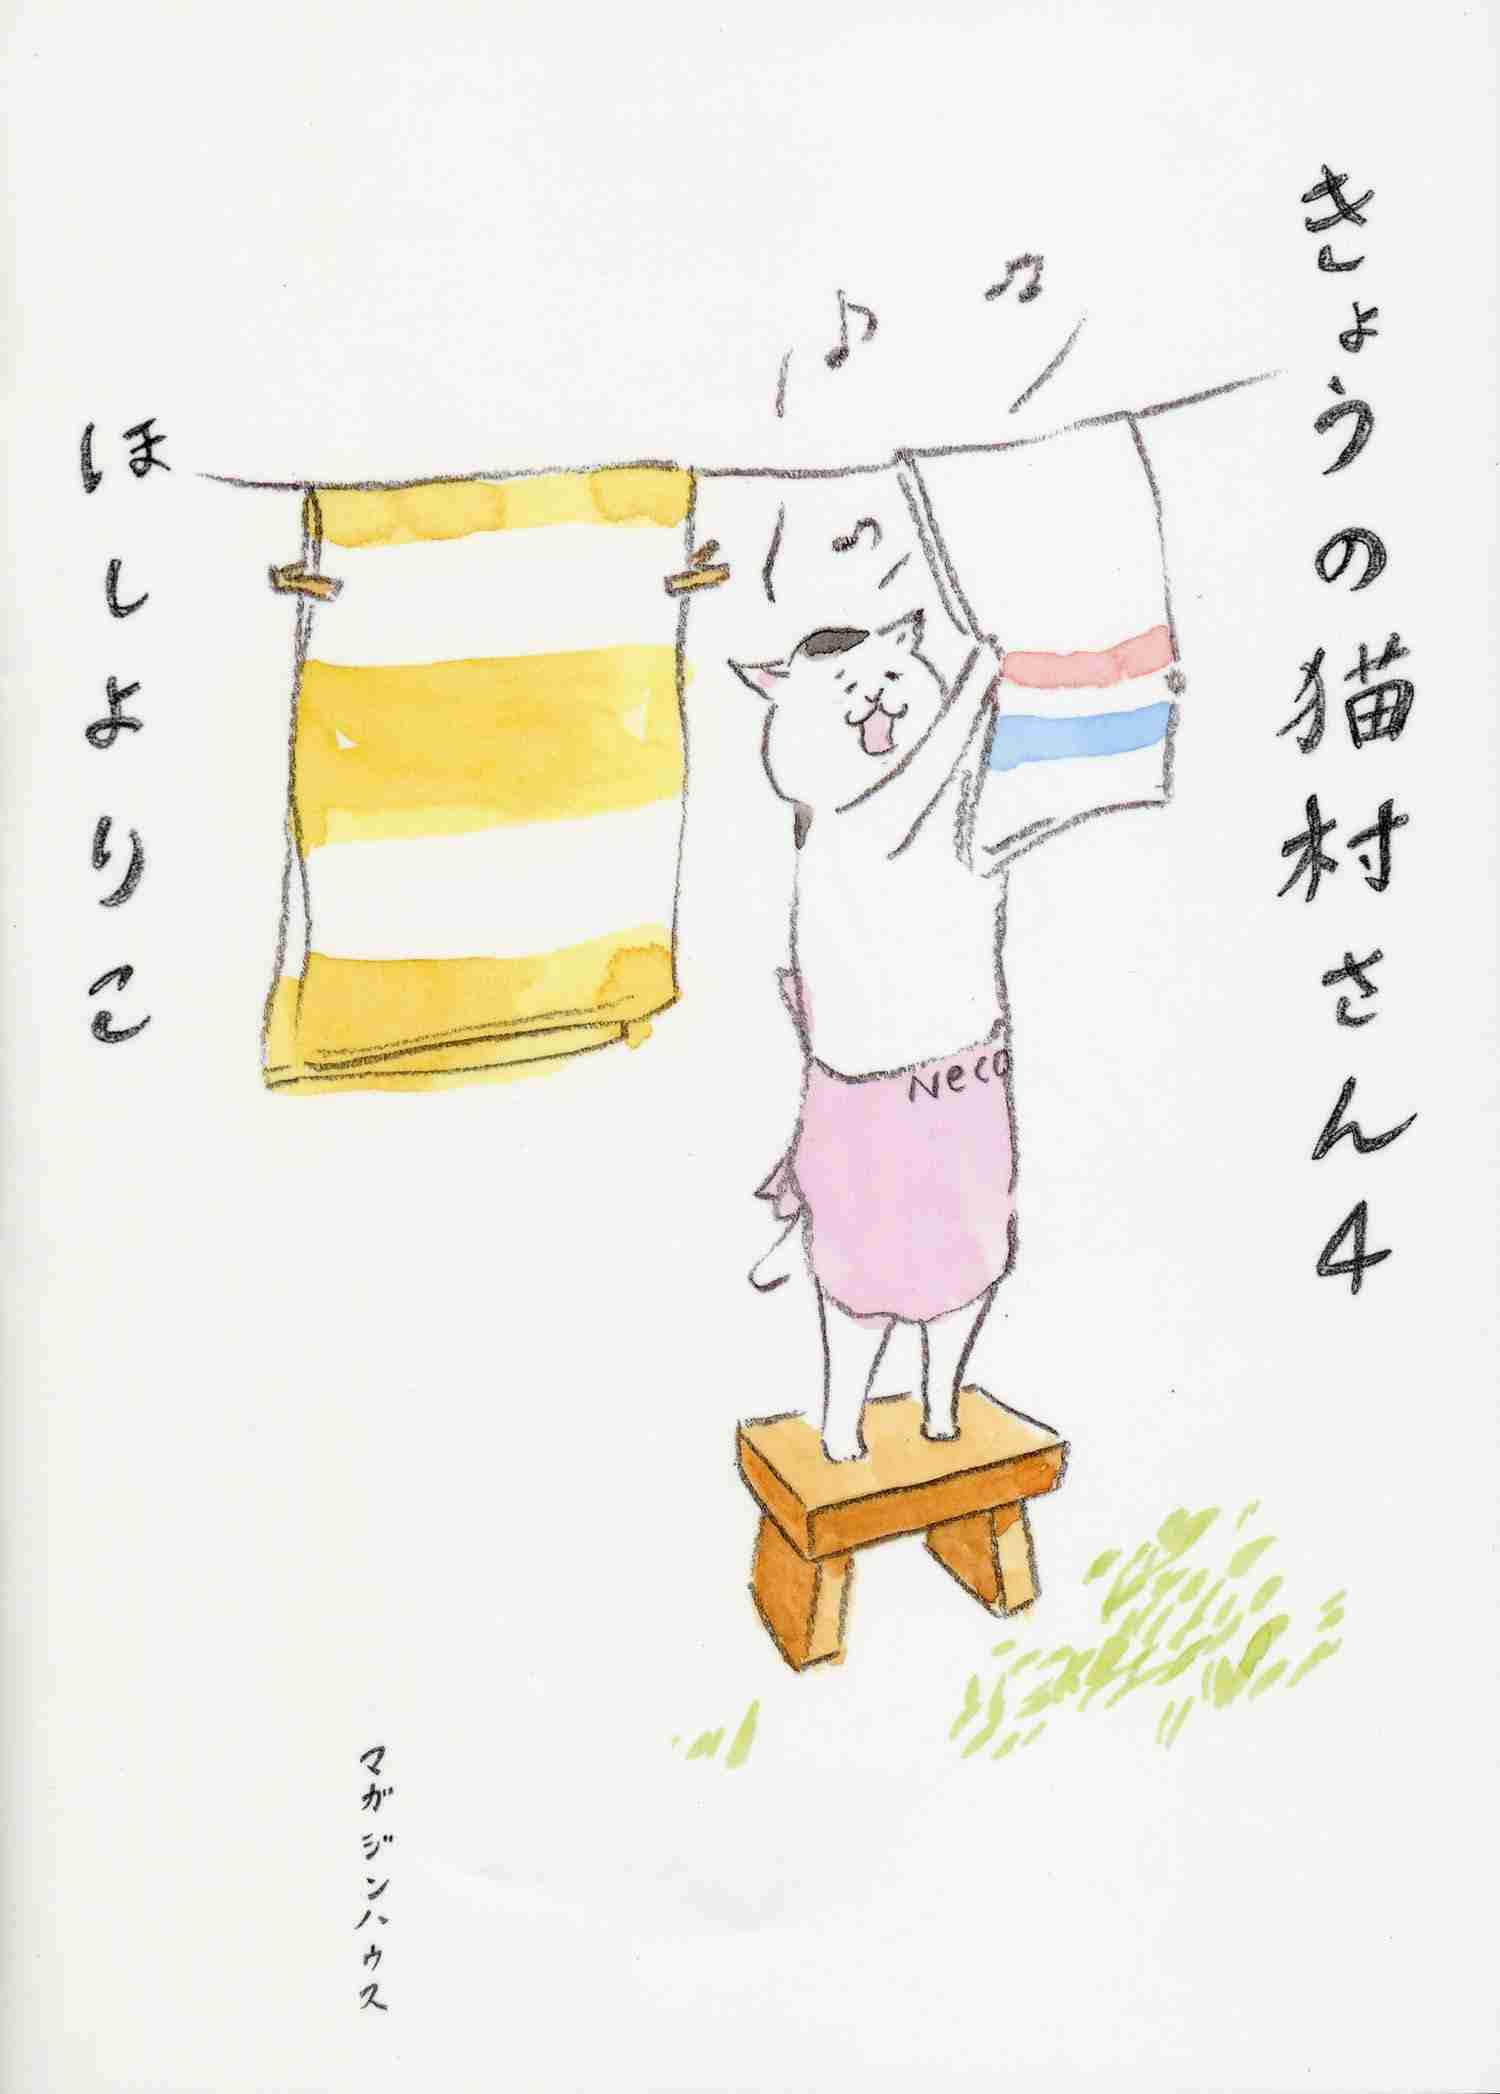 きょうの猫村さん4
ほしよりこ
Neco
マガジンハウス